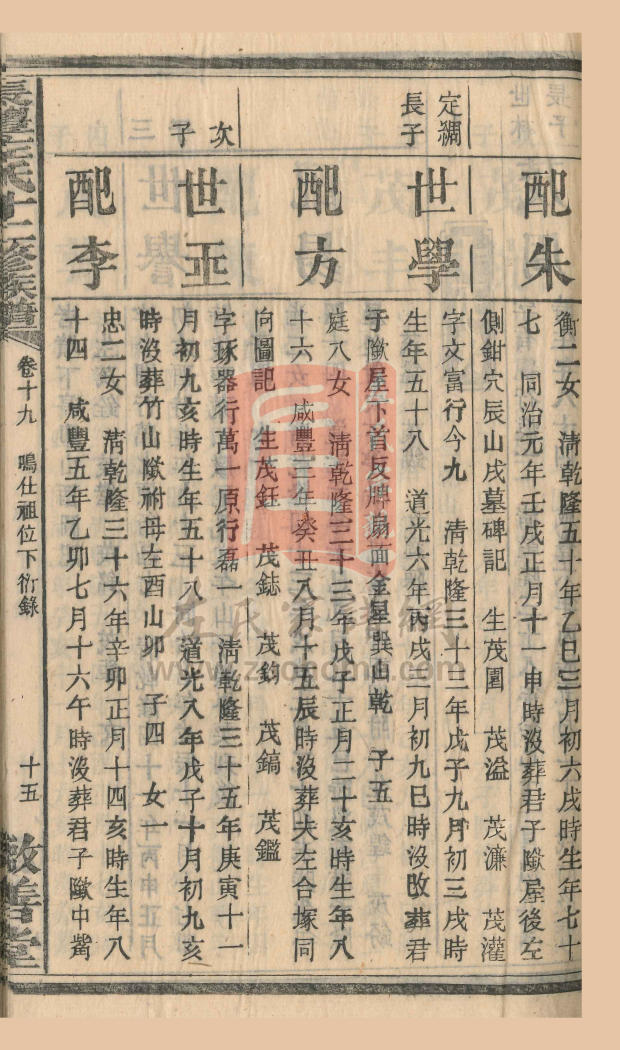 配朱
衡二女 清乾隆五十年乙巳三月初六戌時生年七十
七 同治元年壬戌正月十一申時沒葬君子嶽屋後左
側鉗穴辰山戌墓碑記 生茂圍 茂溢 茂濂 茂灌
定襉
長子
世學
字文富行今九 清乾隆三十三年戊子九月初三戌時
生年五十八 道光六年丙戌三月初九巳時沒改葬君
子嶽屋下首反脾扇面金星巽山乾 子五
配方
庭八女 清乾隆三十三年戊子正月二十亥時生年八
十六 咸豐三年癸丑八月十五辰時沒葬夫左合塚同
向圖記 生茂鈺 茂鋕 茂鈞 茂鎬 茂鑑
次
子
世玉
字琢器行萬一原行磊一 清乾隆三十五年庚寅十一
月初九亥時生年五十八 道光八年戊子十月初九亥
時沒葬竹山嶽祔母左酉山卯 子四 女一
配李
忠二女 清乾隆三十六年辛卯正月十四亥時生年八
十四 咸豐五年乙卯七月十六午時沒葬君子嶽中嘴
左氏十二修族譜 卷十九 鳴仕祖位下衍錄 十五 敬善堂
左氏家譜網
www.zuohome.com